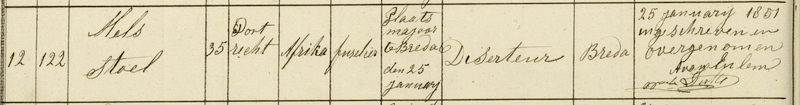 12 122 Mels Stoel 35 Dort recht Afrika fuselier Plaats majoor te Breda den 25 january Deserteur Breda 25 january 1851 ingeschreven en overgenomen